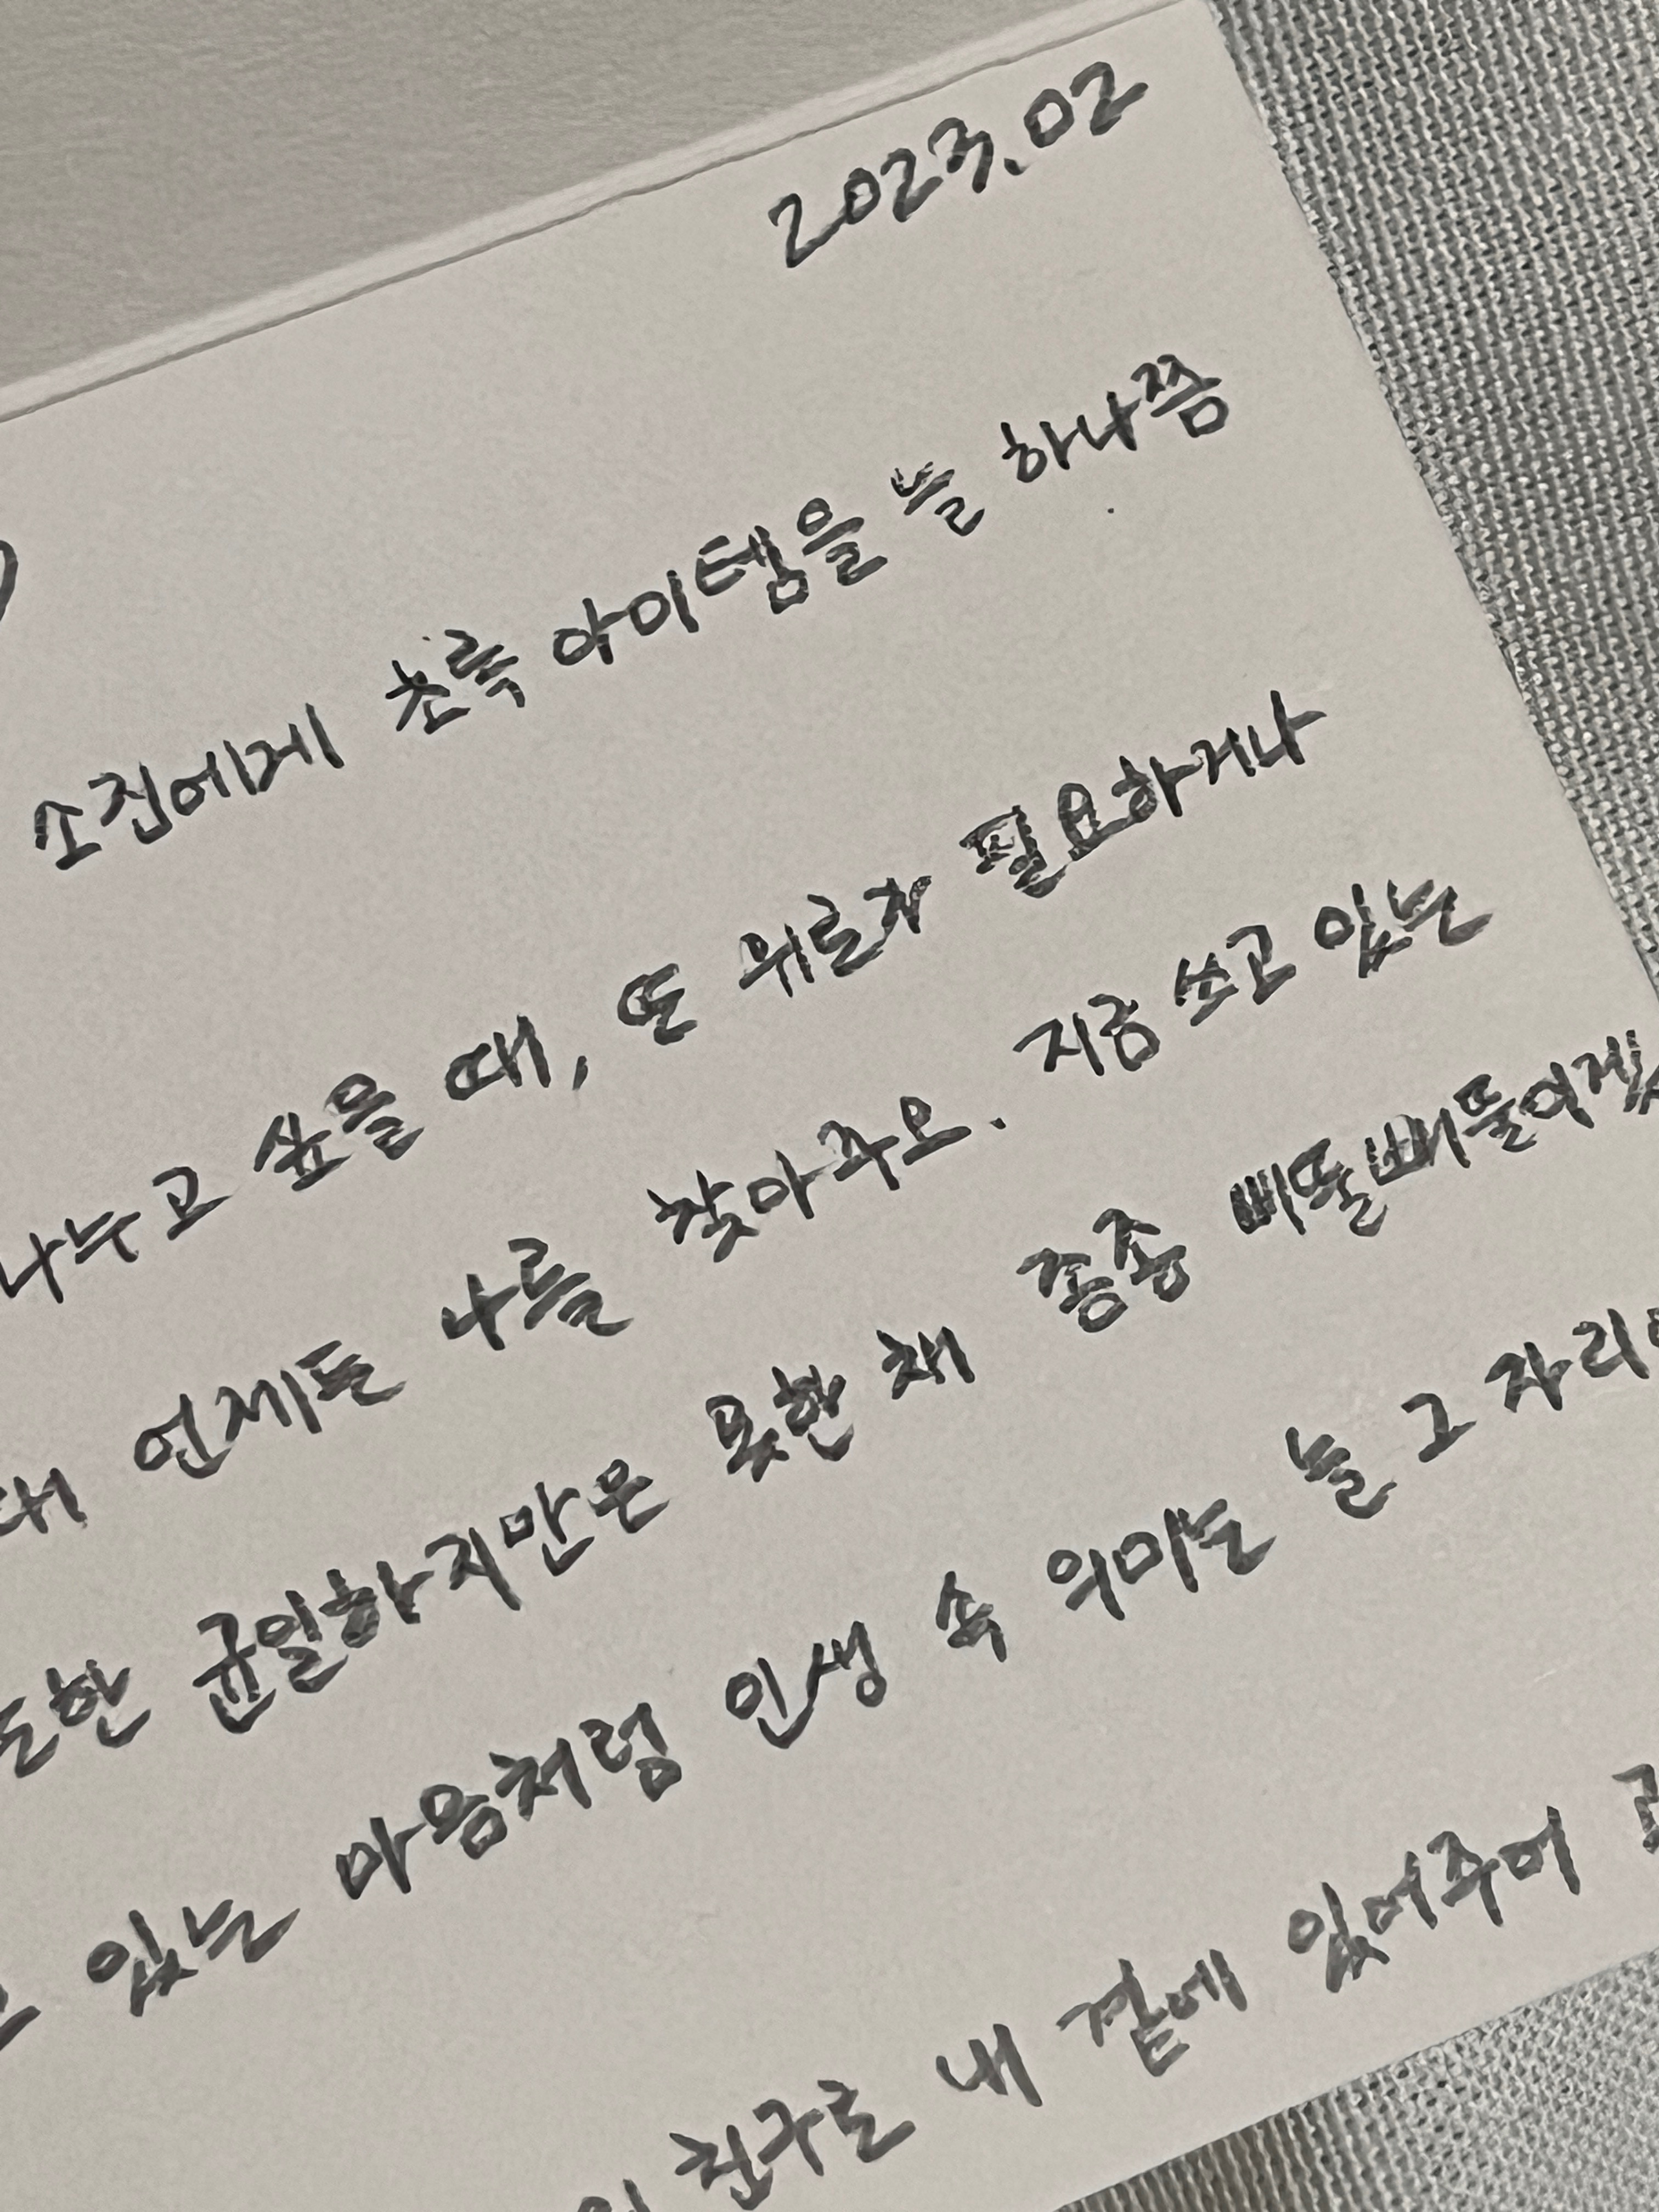 2023.02
소진에게 초록 아이템을 늘 하나쯤
나누고 싶을 때, 또 위로가 필요하거나
언제든 나를 찾아주오. 지금 쓰고 있는
균일하지만은 못한 채 종종 삐뚤빼뚤이겠
있는 마음처럼 인생 속 의미는 늘 그 자리
친구로 내 곁에 있어주어